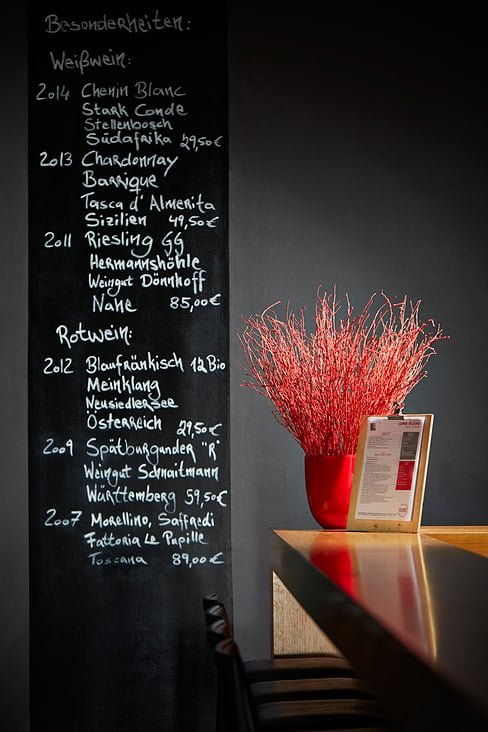 Besonderheiten:
Weißwein:
2014 Chenin Blanc
Stark Conde
Stellenbosch
Südafrika 29,50€
2013 Chardonnay
Barrique
Tasca d'Almerita
Sizilien 49,50€
2011 Riesling GG
Hermannshöhle
Weingut Dönnhoff
Nahe 85,00€
Rotwein:
2012 Blaufränkisch Bio
Meinklang
Neusiedlersee
Österreich 29,50€
2009 Spätburgunder "R"
Weingut Schnaitmann
Württemberg 59,50€
2007 Morellino, Saffredi
Fattoria Le Pupille
Toscana 89,00€
LONG ISLAND